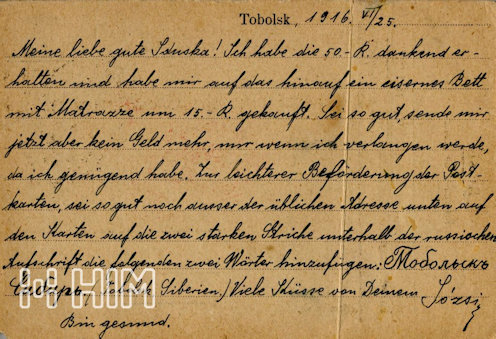 Tobolsk, 1916. VI/25.
Meine liebe gute Iduska! Ich habe die 50.- R. dankend er-
halten und habe mir auf das hinauf ein eisernes Bett
mit Matrazze um 15.- R. gekauft. Sei so gut, sende mir
jetzt aber kein Geld mehr, nur wenn ich verlangen werde,
da ich genügend habe. Zur leichterer Beförderung der Post-
karten, sei so gut noch ausser der üblichen Adresse unten auf
den Karten auf die zwei starken Striche unterhalb der russischen
Aufschrift die folgenden zwei Wörter hinzufügen: Тобольскъ
Сибирь, Sibirien.) Viele Küsse von Deinem Józsi
Bin gesund.
HIM